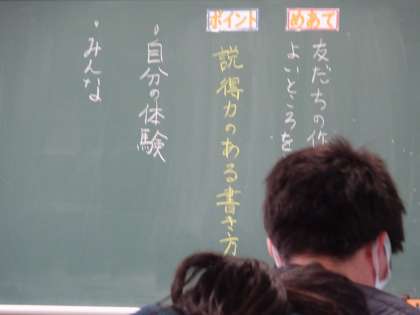 めあて
友だちの作
よいところを
ポイント
説得力のある書き方
・自分の体験
・みんな